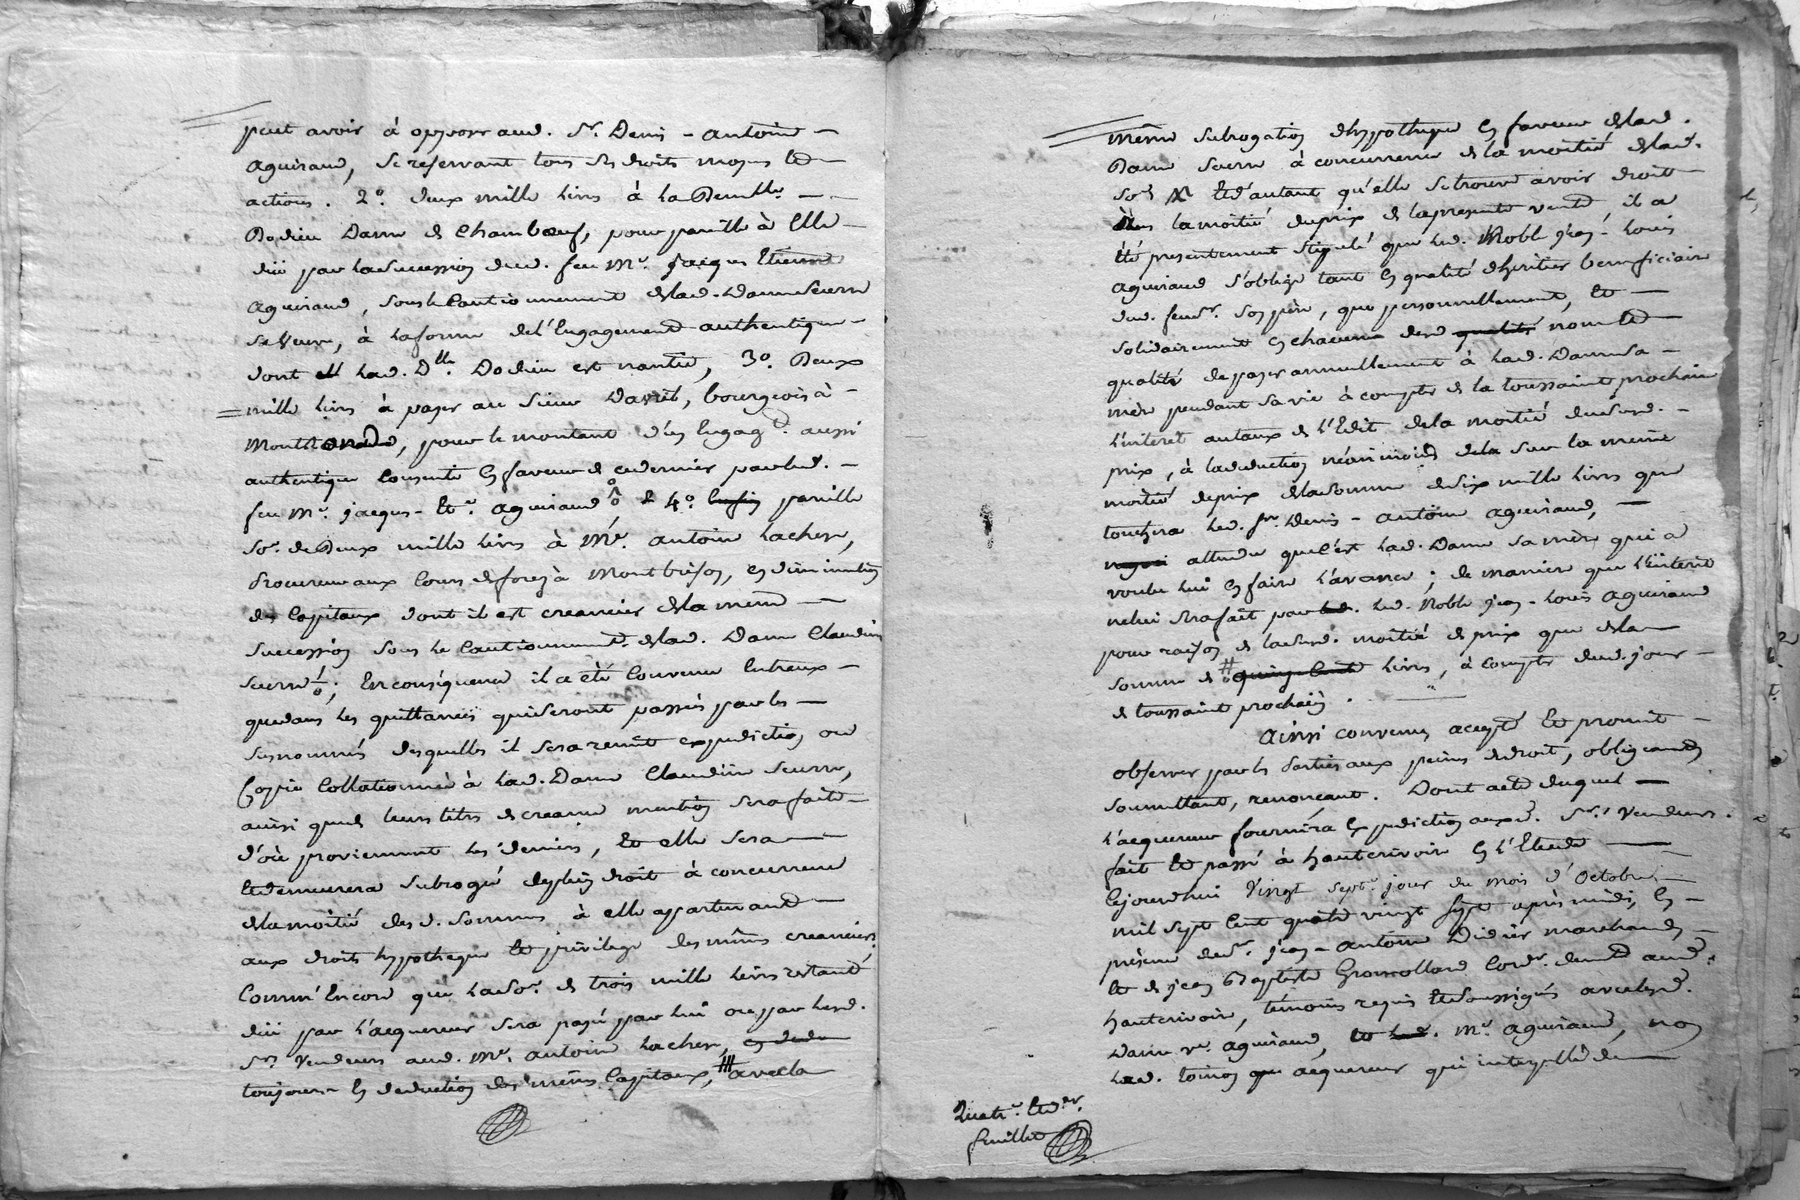 peut avoir à opposer aud. Sr. Denis - antoine
aguiraud, se reservant tous ses droits moyens et
actions. 2o. deux mille livres à la Demlle.
Dodieu Dame de Chambœuf, pour pareille à Elle
düe par la succession dud. feu Me. jacques Etienne
aguiraud, sous le Cautionnement de lad. Dame Seurre
sa veuve, à la forme de l'Engagement authentique
dont lad. Dlle. Dodieu est nantie, 3o. Deux
mille livres à payer au Sieur David, bourgeois à
Montbrond, pour le montant d'un Engagt. aussi
authentique Consenti en faveur de ce dernier par led.
feu Me. jacques - Et. aguiraud & 4o. enfin pareille
so. de Deux mille livres à Me. antoine Lachese,
Procureur aux Cours de forez à Montbrison, en diminution
des Capitaux dont il est creancier de la meme
succession sous le Cautionnemt. de lad. Dame Claudine
Seurre; En conséquence il a été Convenu Entreux
que dans les quittances qui seront passées par les
susnommés desquelles il sera remit expedition ou
Copie Collationnée à lad. Dame Claudine Seurre,
ainsi que de leurs titres de creance mention sera faite
d'où proviennent les deniers, et elle sera
Et demeurera subrogée de plein droit à concurrence
de la moitié des d. sommes à elle appartenant
aux droits hypotheque et privilege des mêmes creanciers;
Comm'Encore que la so. de trois mille livres restant
düe par l'acquereur sera payé par lui ou par lesd.
Srs. Vendeurs aud. Me. antoine Lachese,
toujours en deduction des mêmes Capitaux, avec la
même subrogation d'hypotheque en faveur de lad.
Dame Seurre à concurrence de la moitié de lad.
so. Et d'autant qu'elle se trouve avoir droit
la moitié du prix de la presente vente il a
été presentement stipulé que led. Noble jean - Louis
aguiraud s'oblige tant en qualité d'heritier beneficiaire
dud. feu Sr. son père, que personnellement, et
solidairement en chacun desd. qualités noms et
qualité de payer annuellement à lad. Dame sa
mère pendant sa vie à compter de la toussaint prochaine
l'interet au taux de l'Edit de la moitié dud.
prix, à la deduction néanmoins de la sur la meme
moitié de prix de la somme de six mille livres que
touchera led. Sr. Denis - antoine aguiraud,
attendu que c'est lad. Dame sa mère qui a
voulu lui en faire l'avance; de maniere que l'interet
ne lui sera fait par led. Noble jean - Louis aguiraud
pour raison de lad. moitié de prix que de la
somme de quinze Cent livres, à compter dud. jour
de toussaint prochain.
ainsi convenu accepté et promit
observer par les Parties aux peines de droit, obligeant
soumettant, renonçant. Dont acte duquel
l'acquereur fournira expedition auxd. Srs. Vendeurs.
fait et passé à hauterivoire en l'Etude
Cejourdhui Vingt sept. jour du mois d'Octobre
mil sept Cent quatre vingt sept après midi, en
présence de Sr. jean - antoine Didier marchand,
et de jean Baptiste Gromollard Cord. demt. aud.
hauterivoire, témoins requis et soussignés avec lad.
Dame ve. aguiraud, Me. aguiraud, non
led. Loinon acquereur qui interpellé de
Quatr. Et der.
feuillet